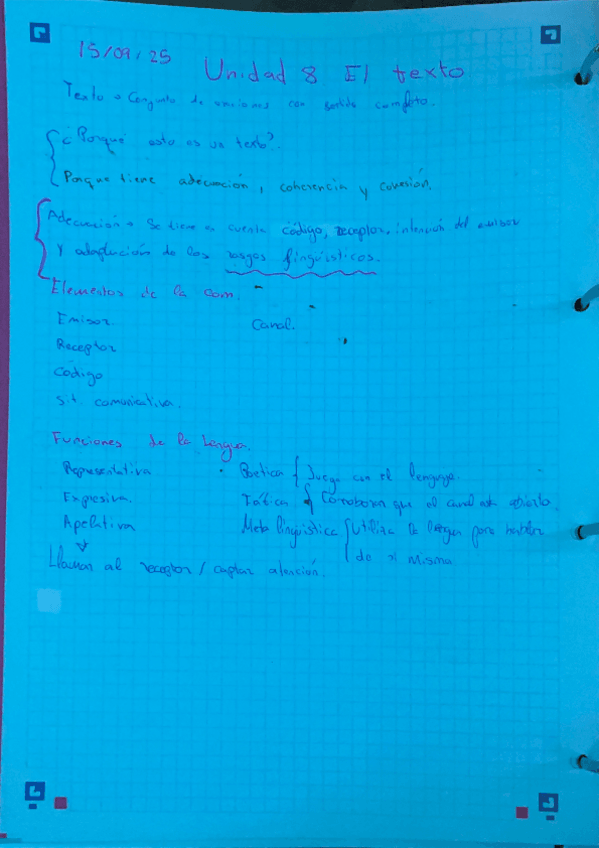 15/09/25
Unidad 8 El texto
Texto → Conjunto de oraciones con sentido completo.
¿Porqué esto es un texto?
Porque tiene adecuación, coherencia y cohesión.
Adecuación → Se tiene en cuenta código, receptor, intención del emisor
y adaptación de los rasgos lingüísticos.
Elementos de la com.
Emisor Canal.
Receptor
Código
Sit. comunicativa.
Funciones de la Lengua.
Representativa Poética { Juega con el lenguaje.
Expresiva. Fática { Corroboran que el canal está abierto.
Apelativa Metalingüística { Utiliza la lengua para hablar
↓ de si misma
Llamar al receptor / captar atención.